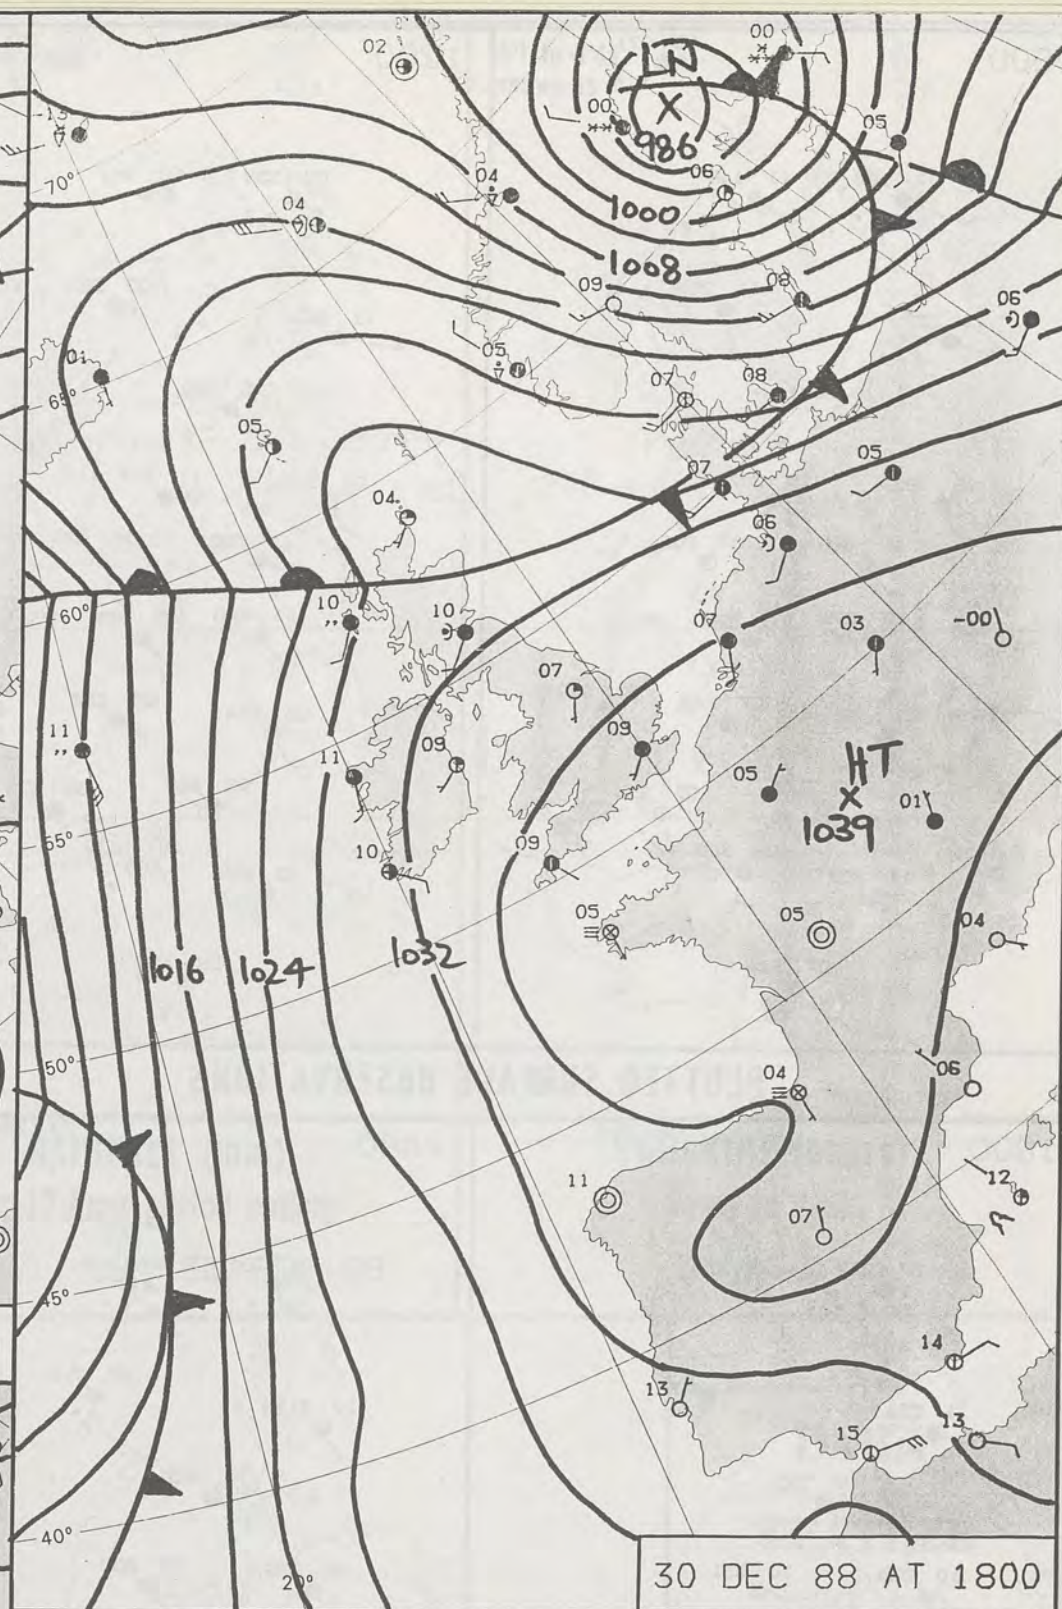 02
00
LN
X
986
-13
70°
00
05
04
06
04
1000
1008
09
08
06
01
65°
05
07
08
05
05
04
07
06
60°
10
10
07
03
-00
07
11
11
09
09
05
HT
X
1039
01
55°
10
09
05
05
04
1016
1024
1032
50°
04
06
11
07
12
45°
14
13
15
13
40°
20°
30 DEC 88 AT 1800